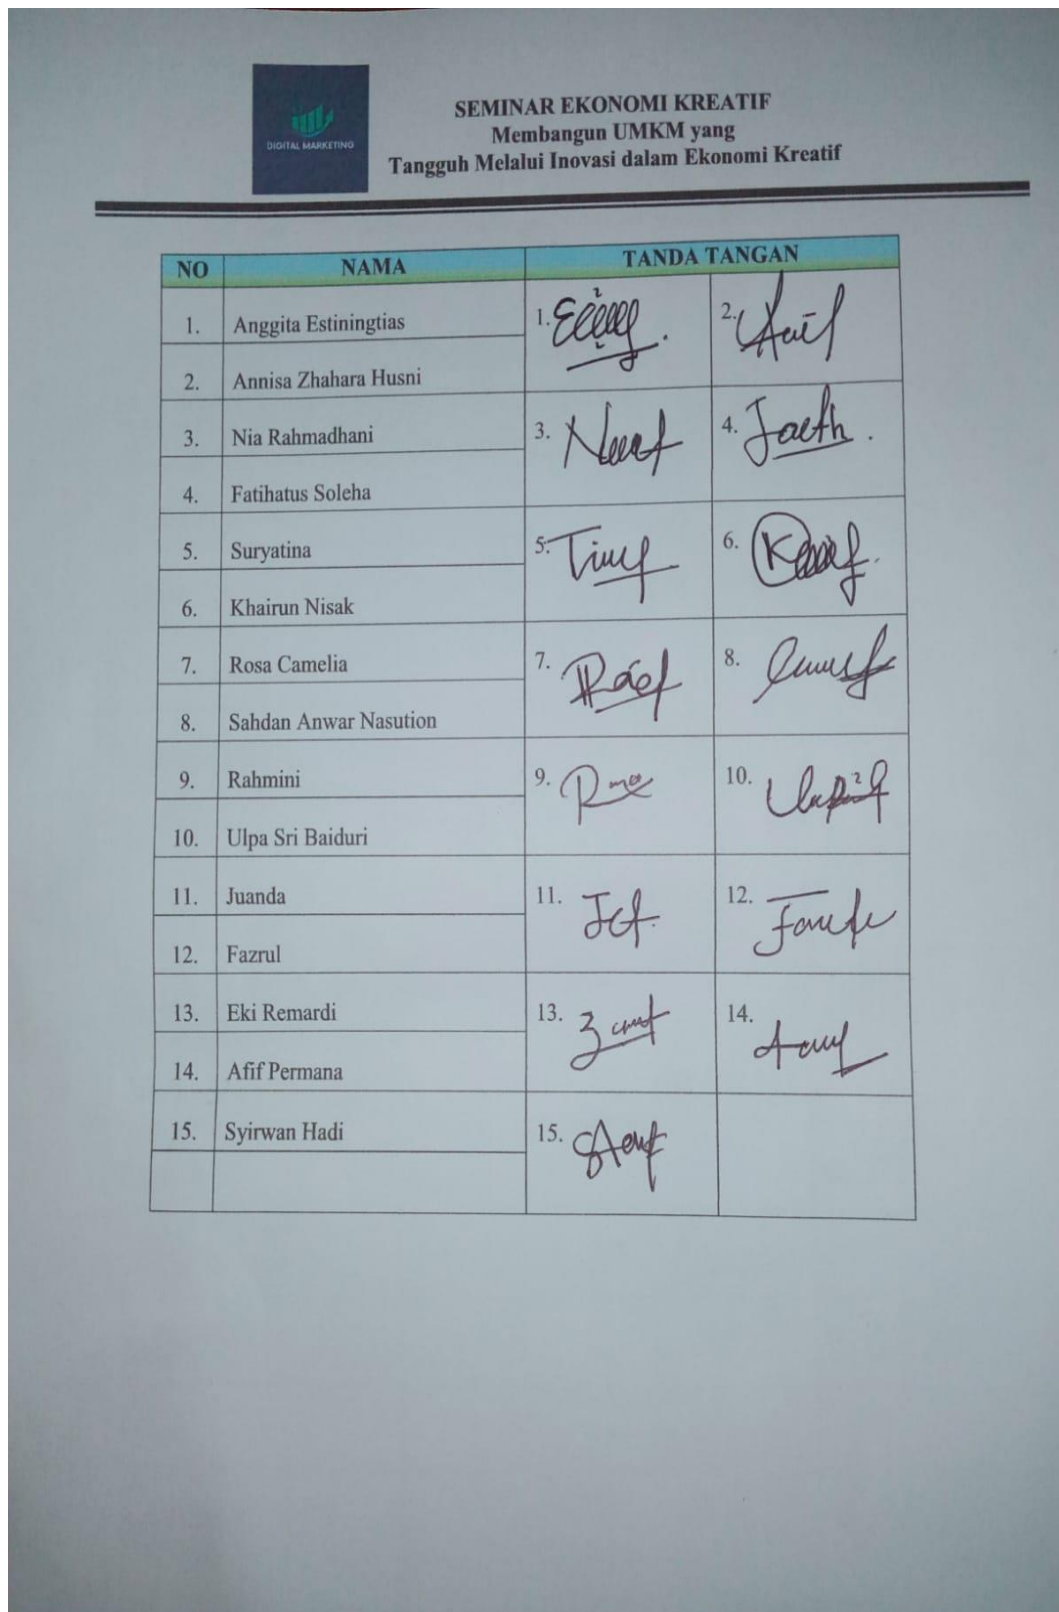 DIGITAL MARKETING
SEMINAR EKONOMI KREATIF
Membangun UMKM yang
Tangguh Melalui Inovasi dalam Ekonomi Kreatif
NO NAMA TANDA TANGAN
1. Anggita Estiningtias 1. 2.
2. Annisa Zhahara Husni
3. Nia Rahmadhani 3. 4.
4. Fatihatus Soleha
5. Suryatina 5. 6.
6. Khairun Nisak
7. Rosa Camelia 7. 8.
8. Sahdan Anwar Nasution
9. Rahmini 9. 10.
10. Ulpa Sri Baiduri
11. Juanda 11. 12.
12. Fazrul
13. Eki Remardi 13. 14.
14. Afif Permana
15. Syirwan Hadi 15.